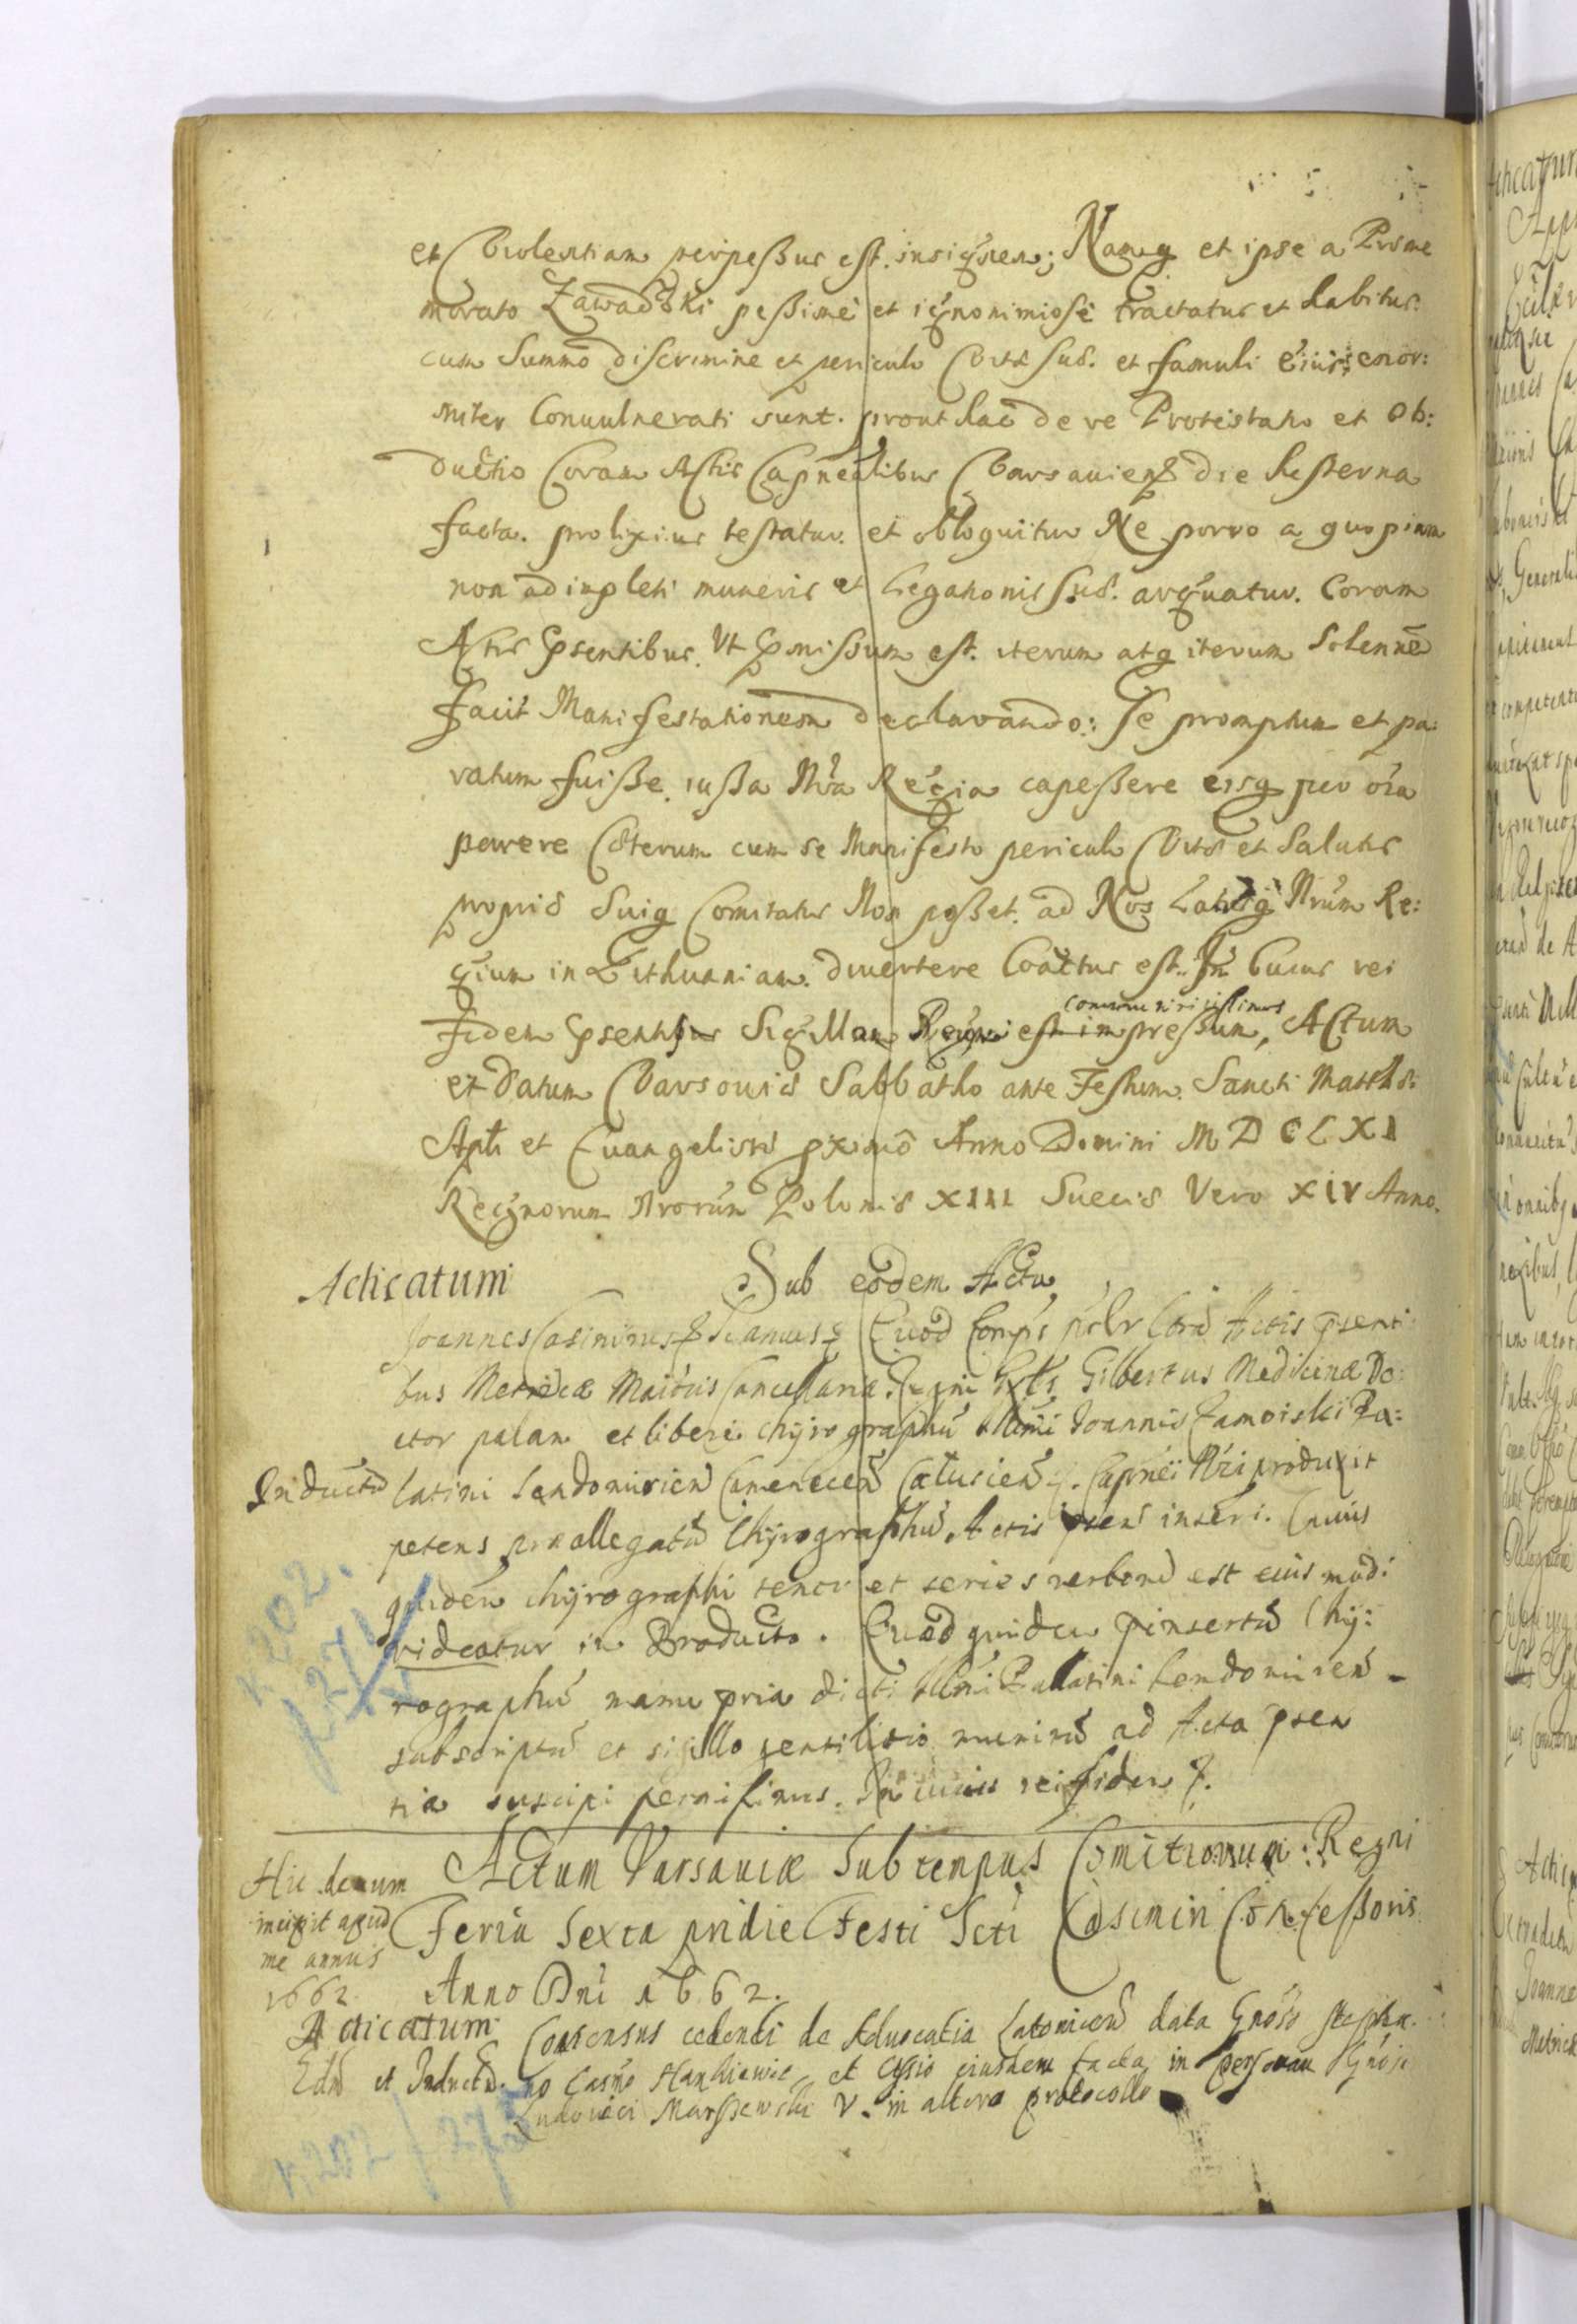 et Violentiam perpeßus est. insignem; Namq et ipse a Prsme
morato Zawadzki peßime et ignonimiose tractatur et habitus.
cum Summo discrimine et periculo Vitæ suæ. et famuli eius enor:
miter Convulnerati sunt. prout hac de re Protestatio et Ob:
ductio Coram Actis Capnealibus Varsavien die hesterna
facta. prolixius testatur. et obloquitur Ne porro a quopiam
non adimpleti muneris et Legationis suæ. arguatur. Coram
Actis psentibus. Ut pmissum est. iterum atq iterum Solenne
facit Manifestationem declarando: Se promptum et pa:
ratum fuisse. iussa Nra Regia capeßere eisq per oia
parere Cæterum cum se Manifesto periculo Vitæ et Salutis
propriæ Suiq Comitatus Non poßet. ad Nos Latusq Nrum Re:
gium in Lithuaniam. divertere Coactus est. In Cuius rei
communiri iussimus
Fidem psentibus Sigillum Regni est impressum, Actum
et Datum Varsoviæ Sabbatho ante Festum. Sancti Matthæi
Apli et Evangelistæ pximo Anno Domini MDCLXI
Regnorum Nrorum Poloniæ XIII Sueciæ Vero XIV Anno.
Acticatum Sub eodem Actu
Joannes Casimirus Quod Comps Actis psenti
bus Metricæ Maioris Cancellariæ Regni Gilbertus Medicinæ Do:
ctor palam et libere chyrographu Illmi Joannis Zamoiski Pa:
Inductu latini Sendomirien Camenecen Calusien Capnei Nri produxit
petens præallegatu Chyrographu Actis psen inseri. Cuius
quidem chyrographi tenor et series verboru est eius modi
videatur in Producto. Quod quidem pinsertu Chy:
rographu manu pria dicti Illmi Palatini Sendomirien
subscriptu et sigillo gentilitio munitu ad Acta psen
tia suscipi permisimus. In cuius rei fidem
Actum Varsaviæ Sub tempus Comitiorum Regni
Hic demum
incipit apud
me annus
1662
Feria Sexta pridie Festi Scti Casimiri Confeßoris
Anno Dni 1662.
Acticatum Consensus cedendi de Advocatia data Gnoso Stepha
et Inductu. no Casmo Hankiewic et Cessio eiusdem facta in personam Gnosi
Ludovici V. in altero protocollo